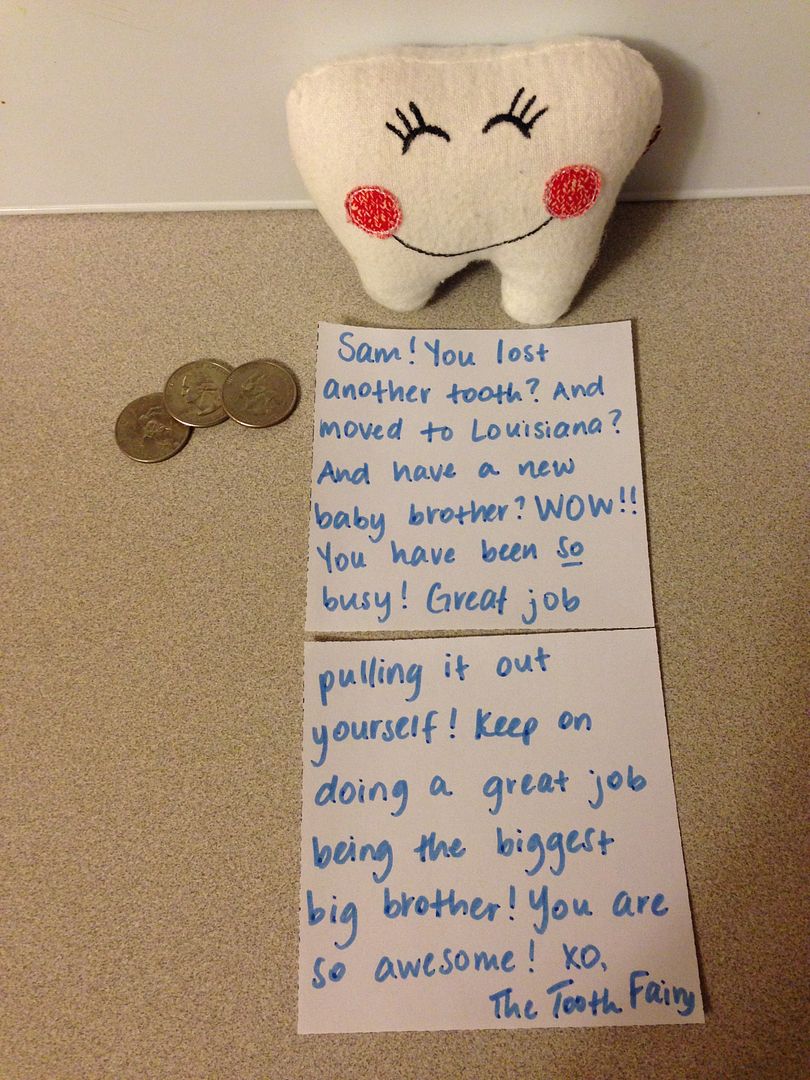 Sam! You lost
another tooth? And
moved to Louisiana?
And have a new
baby brother? WOW!!
You have been so
busy! Great job
pulling it out
yourself! Keep on
doing a great job
being the biggest
big brother! You are
so awesome! XO,
The Tooth Fairy